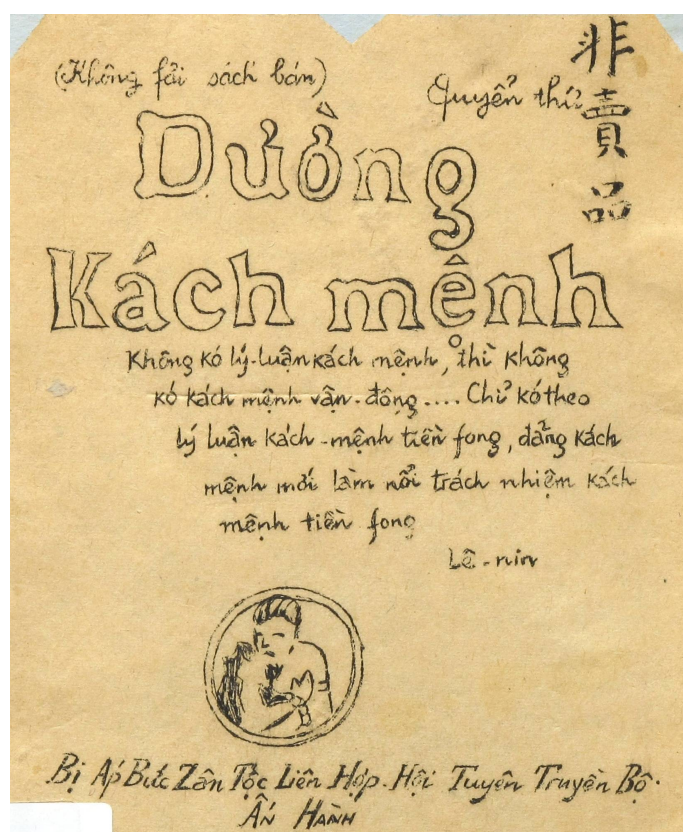 (Không fải sách bán)
Quyển thứ
非賣品
Đường
Kách mệnh
Không kó lý-luận kách mệnh, thì không
kó kách mệnh vận-động.... Chỉ kó theo
lý luận kách-mệnh tiền fong, đảng kách
mệnh mới làm nổi trách nhiệm kách
mệnh tiền fong
Lê-nin
Bị Áp Bức Zân Tộc Liên Hợp Hội Tuyên Truyền Bộ.
Ấn Hành